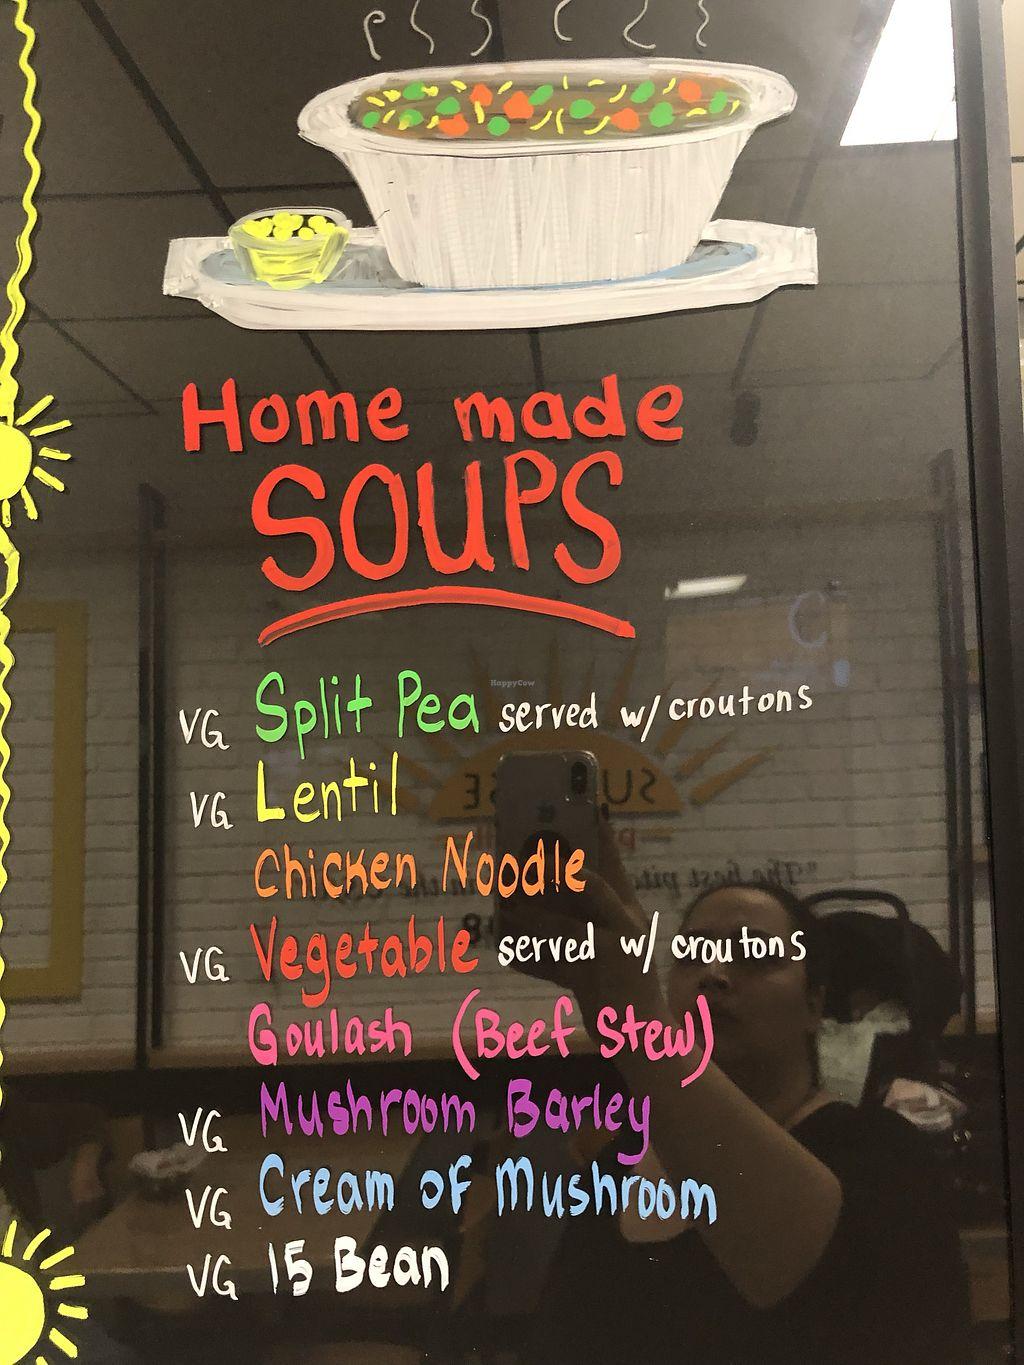 Home made
SOUPS
VG Split Pea served w/ croutons
HappyCow
VG Lentil
Chicken Noodle
VG Vegetable served w/ croutons
Goulash (Beef Stew)
VG Mushroom Barley
VG Cream of Mushroom
VG 15 Bean